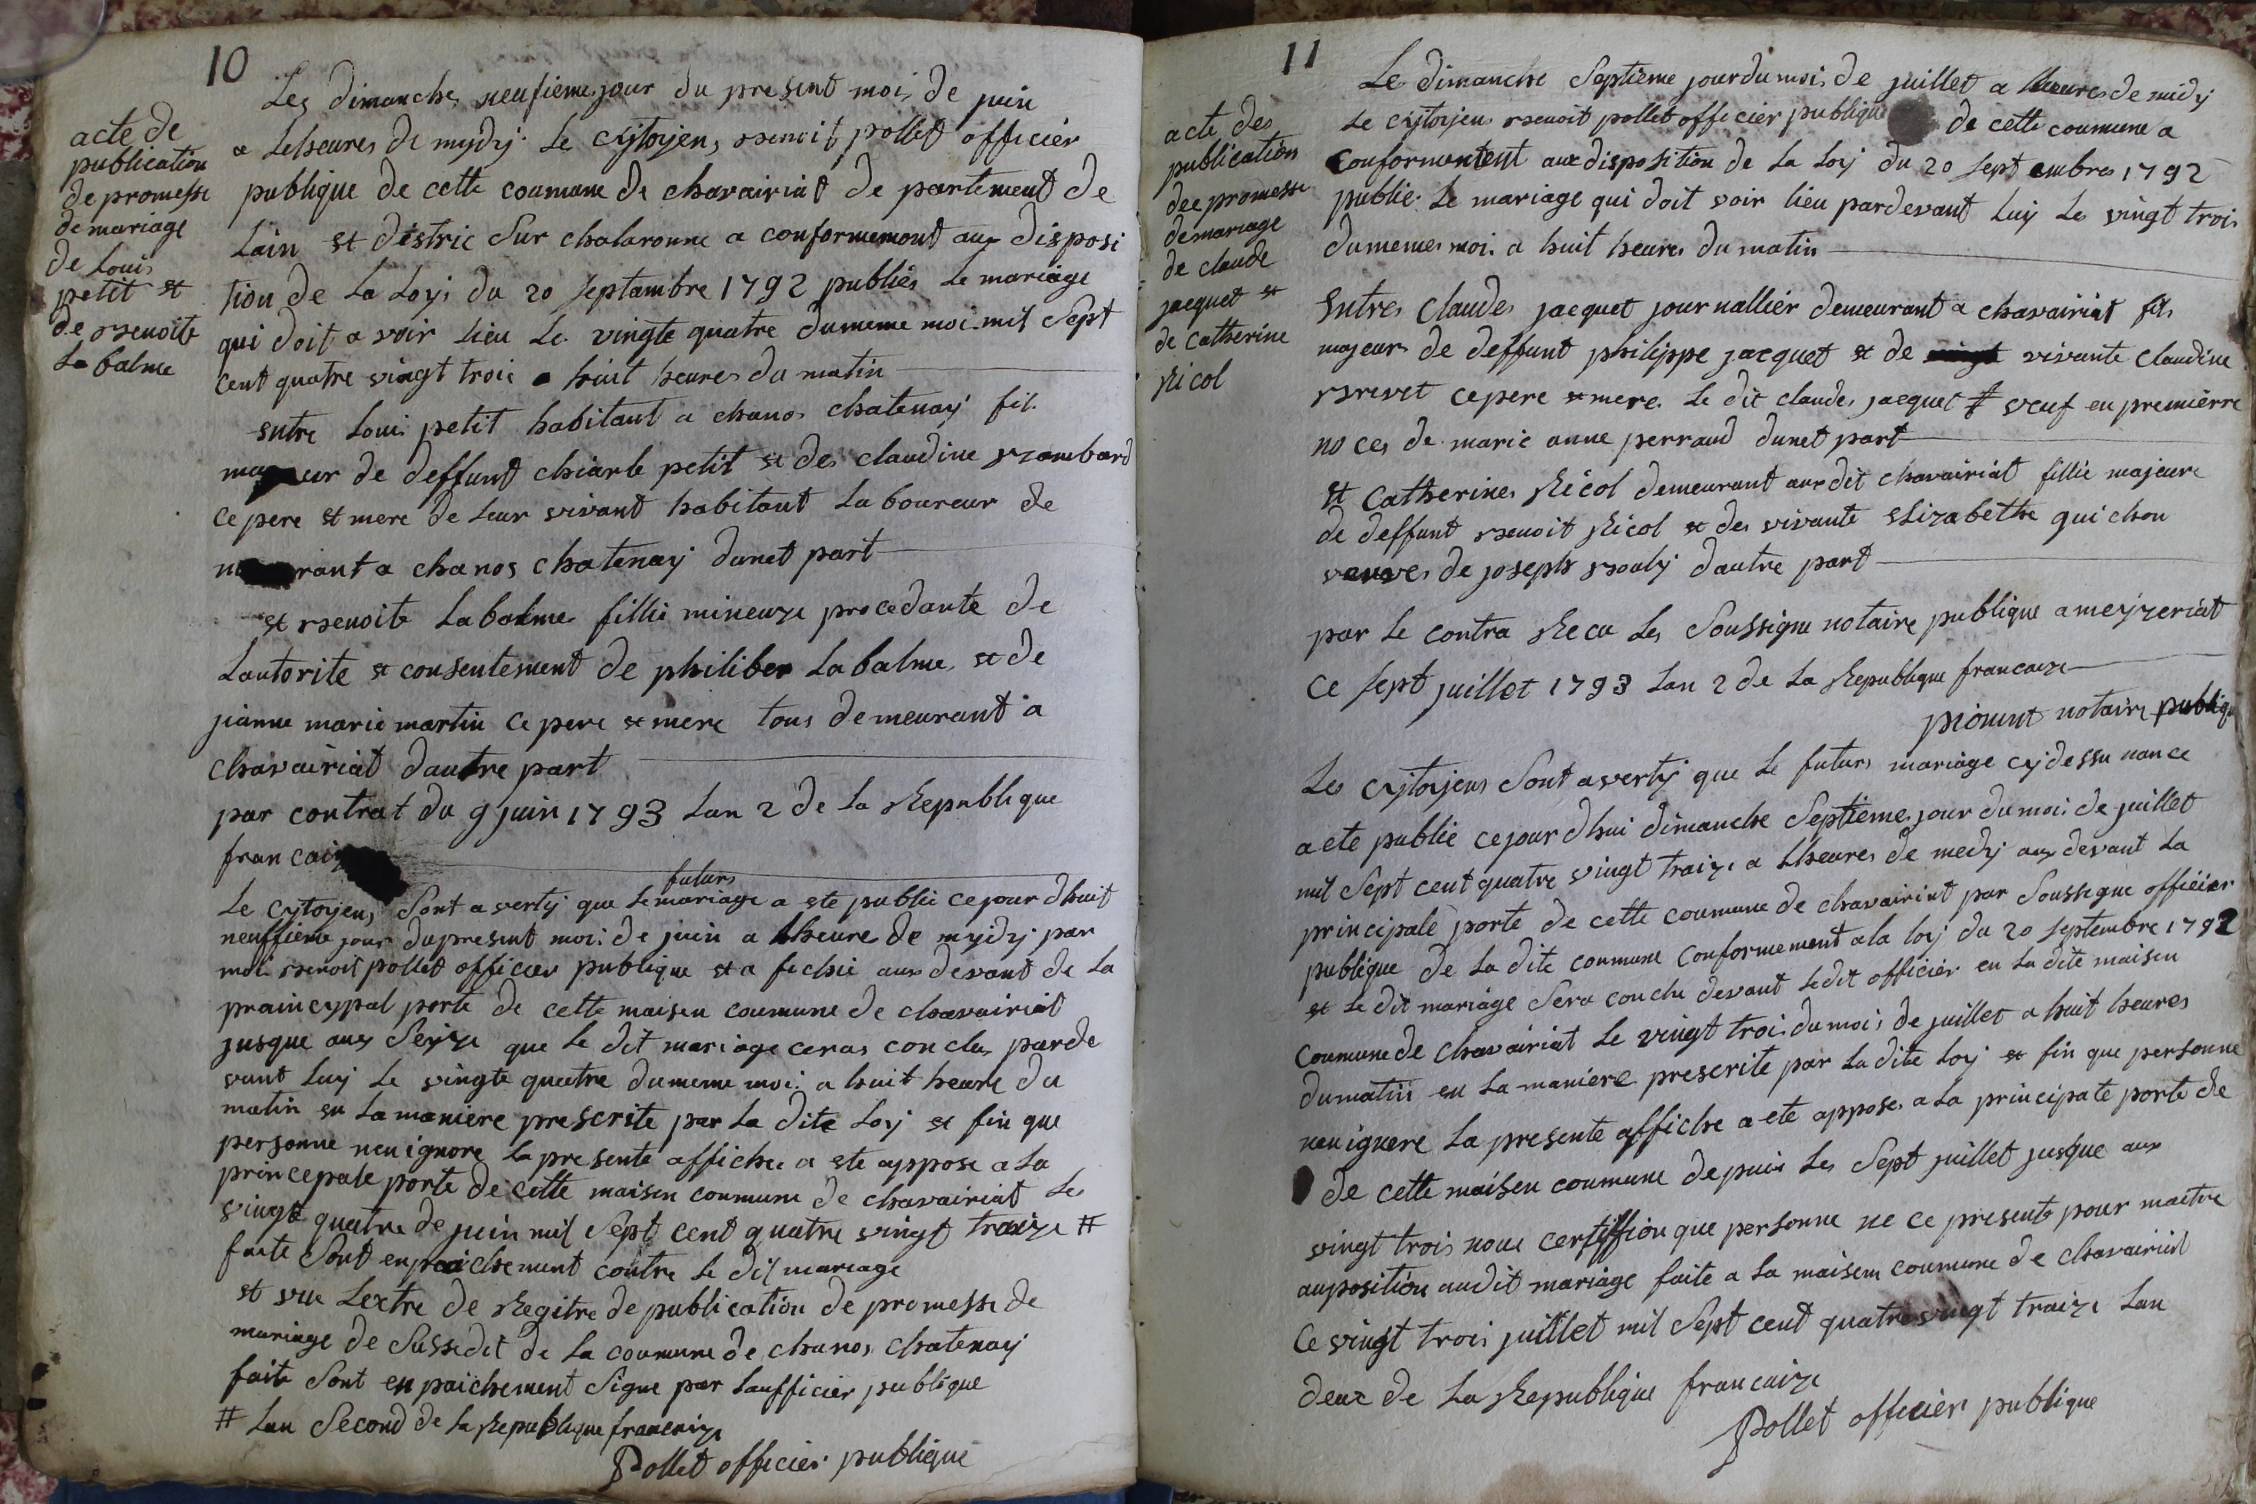 10
acte de
publication
de promesse
de mariage
de Loui
petit et
de Benoite
La balme
Les dimanche neufieme jour du present moi de juin
a Leheures de mydy Le Cytoyen, Benoit pollet officier
publique de cette coumune de chavairiat de partement de
Lain et distric Sur chalaronne a conformemont aux disposi
tion de La Loy du 20 Septambre 1792 publiés Le mariage
qui doit a voir lieu Le vingte quatre dumeme moi mil Sept
cent quatre vingt troie a huit heures du matin
entre Loui petit habitant a chanos chatenay fils
majeur de deffunt chiarle petit et des claudine Bombard
ce pere et mere de Leur vivant habitant La boureur de
rant a chanos chatenay dunet part
et Benoite La balme fillie mineuze procedante de
Lautorite et consentement de philiber La balme et de
jianne marie martin ce pere et mere tous demeurant a
chavairiat dautre part
par contrat du 9 juin 1793 Lan 2 de La Republique
francaiz
futurs
Le Cytoyens Sont a verty que Le mariage a ete publie cejour dhuit
neuffieme jour dupresent moi de juin a Lheure de mydy par
moi Benoit pollet officier publique et a fichie aux devant de La
praincypal porte de cette maison coumune de chavairiat
jusque aux Seize que Le dit mariage ceras conclus parde
vant Luy Le vingte quatre dumeme moi a huit heure du
matin en La maniere prescrite par La dite Loy et fin que
personne nen ignore La presente affiche a ete appose a La
princepale porte de cette maison coumune de chavairiat Le
vingt quatre de juin mil Sept cent quatre vingt traize #
faite Sont enpaichement contre Le dit mariage
et vu Lextre de Regitre de publication de promesse de
mariage de Sussedit de La coumune de chanos chatenay
faite Sont enpaichement Signe par Laufficier publique
# Lan Second de La Republique francaize
Pollet officier publique
11
acte des
publication
dee promesse
de mariage
de claude
jacquet et
de Catherine
Nicol
Le dimanche Septieme jour du moi de juillet a Lheures de midy
Le Cytoyen Benoit pollet officier publique de cette coumune a
conformentent aux disposition de La Loy du 20 Sept embres 1792
publie Le mariage qui doit voir lieu pardevant Luy Le vingt trois
dumemes moi a huit heures du matin
Entres Claudes jacquet journallier demeurant a chavairiat fils
majeur de deffunt philippe jacquet et de vivante Claudine
Brevet cepere et mere Le dit claudes jacquet # veuf en premierre
no ces de marie anne perraud dunet part
et Catherine Nicol demeurant aux dit chavairiat fillie majeure
de deffunt Benoit Nicol et des vivante Elizabethe quichon
veuves de joseph Bouly dautre part
par Le contra Recu Les Soussigne notaire publique a meyzeriat
ce Sept juillet 1793 Lan 2 de La Republique francaize
notaire publique
Les Cytoyens Sont averty que Le futurs mariage cydessu nance
a ete publie cejour dhui dimanche Septieme jour du moi de juillet
mil Sept cent quatre vingt traize a Lheures de medy aux devant La
principale porte de cette coumune de chavairiat par Soussegne officier
publique de La dite coumune Conformement ala loy du 20 Septembre 1792
et Le dit mariage Sera conclu devant Ledit officier en La dite maison
coumune de chavairiat Le vingt trois du mois de juillet a huit heures
dumatin en La maniere prescrite par La dite Loy et fin que personne
nen ignore La presente affiche a ete appose a La principale porte de
de cette maison coumune depuis Les Sept juillet jusque aux
vingt trois nous certiffion que personne ne ce presente pour maitre
auposition audit mariage faite a La maison coumune de chavairiat
Ce vingt trois juillet mil Sept cent quatre vingt traize Lan
deux de La Republique francaize
Pollet officier publique